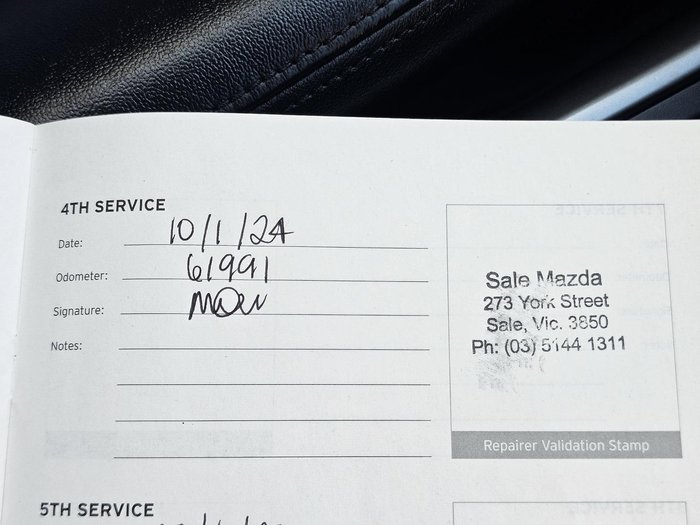 4TH SERVICE
Date: 10/1/24
Odometer: 61991
Signature:
Notes:
Sale Mazda
273 York Street
Sale, Vic. 3850
Ph: (03) 5144 1311
Repairer Validation Stamp
5TH SERVICE